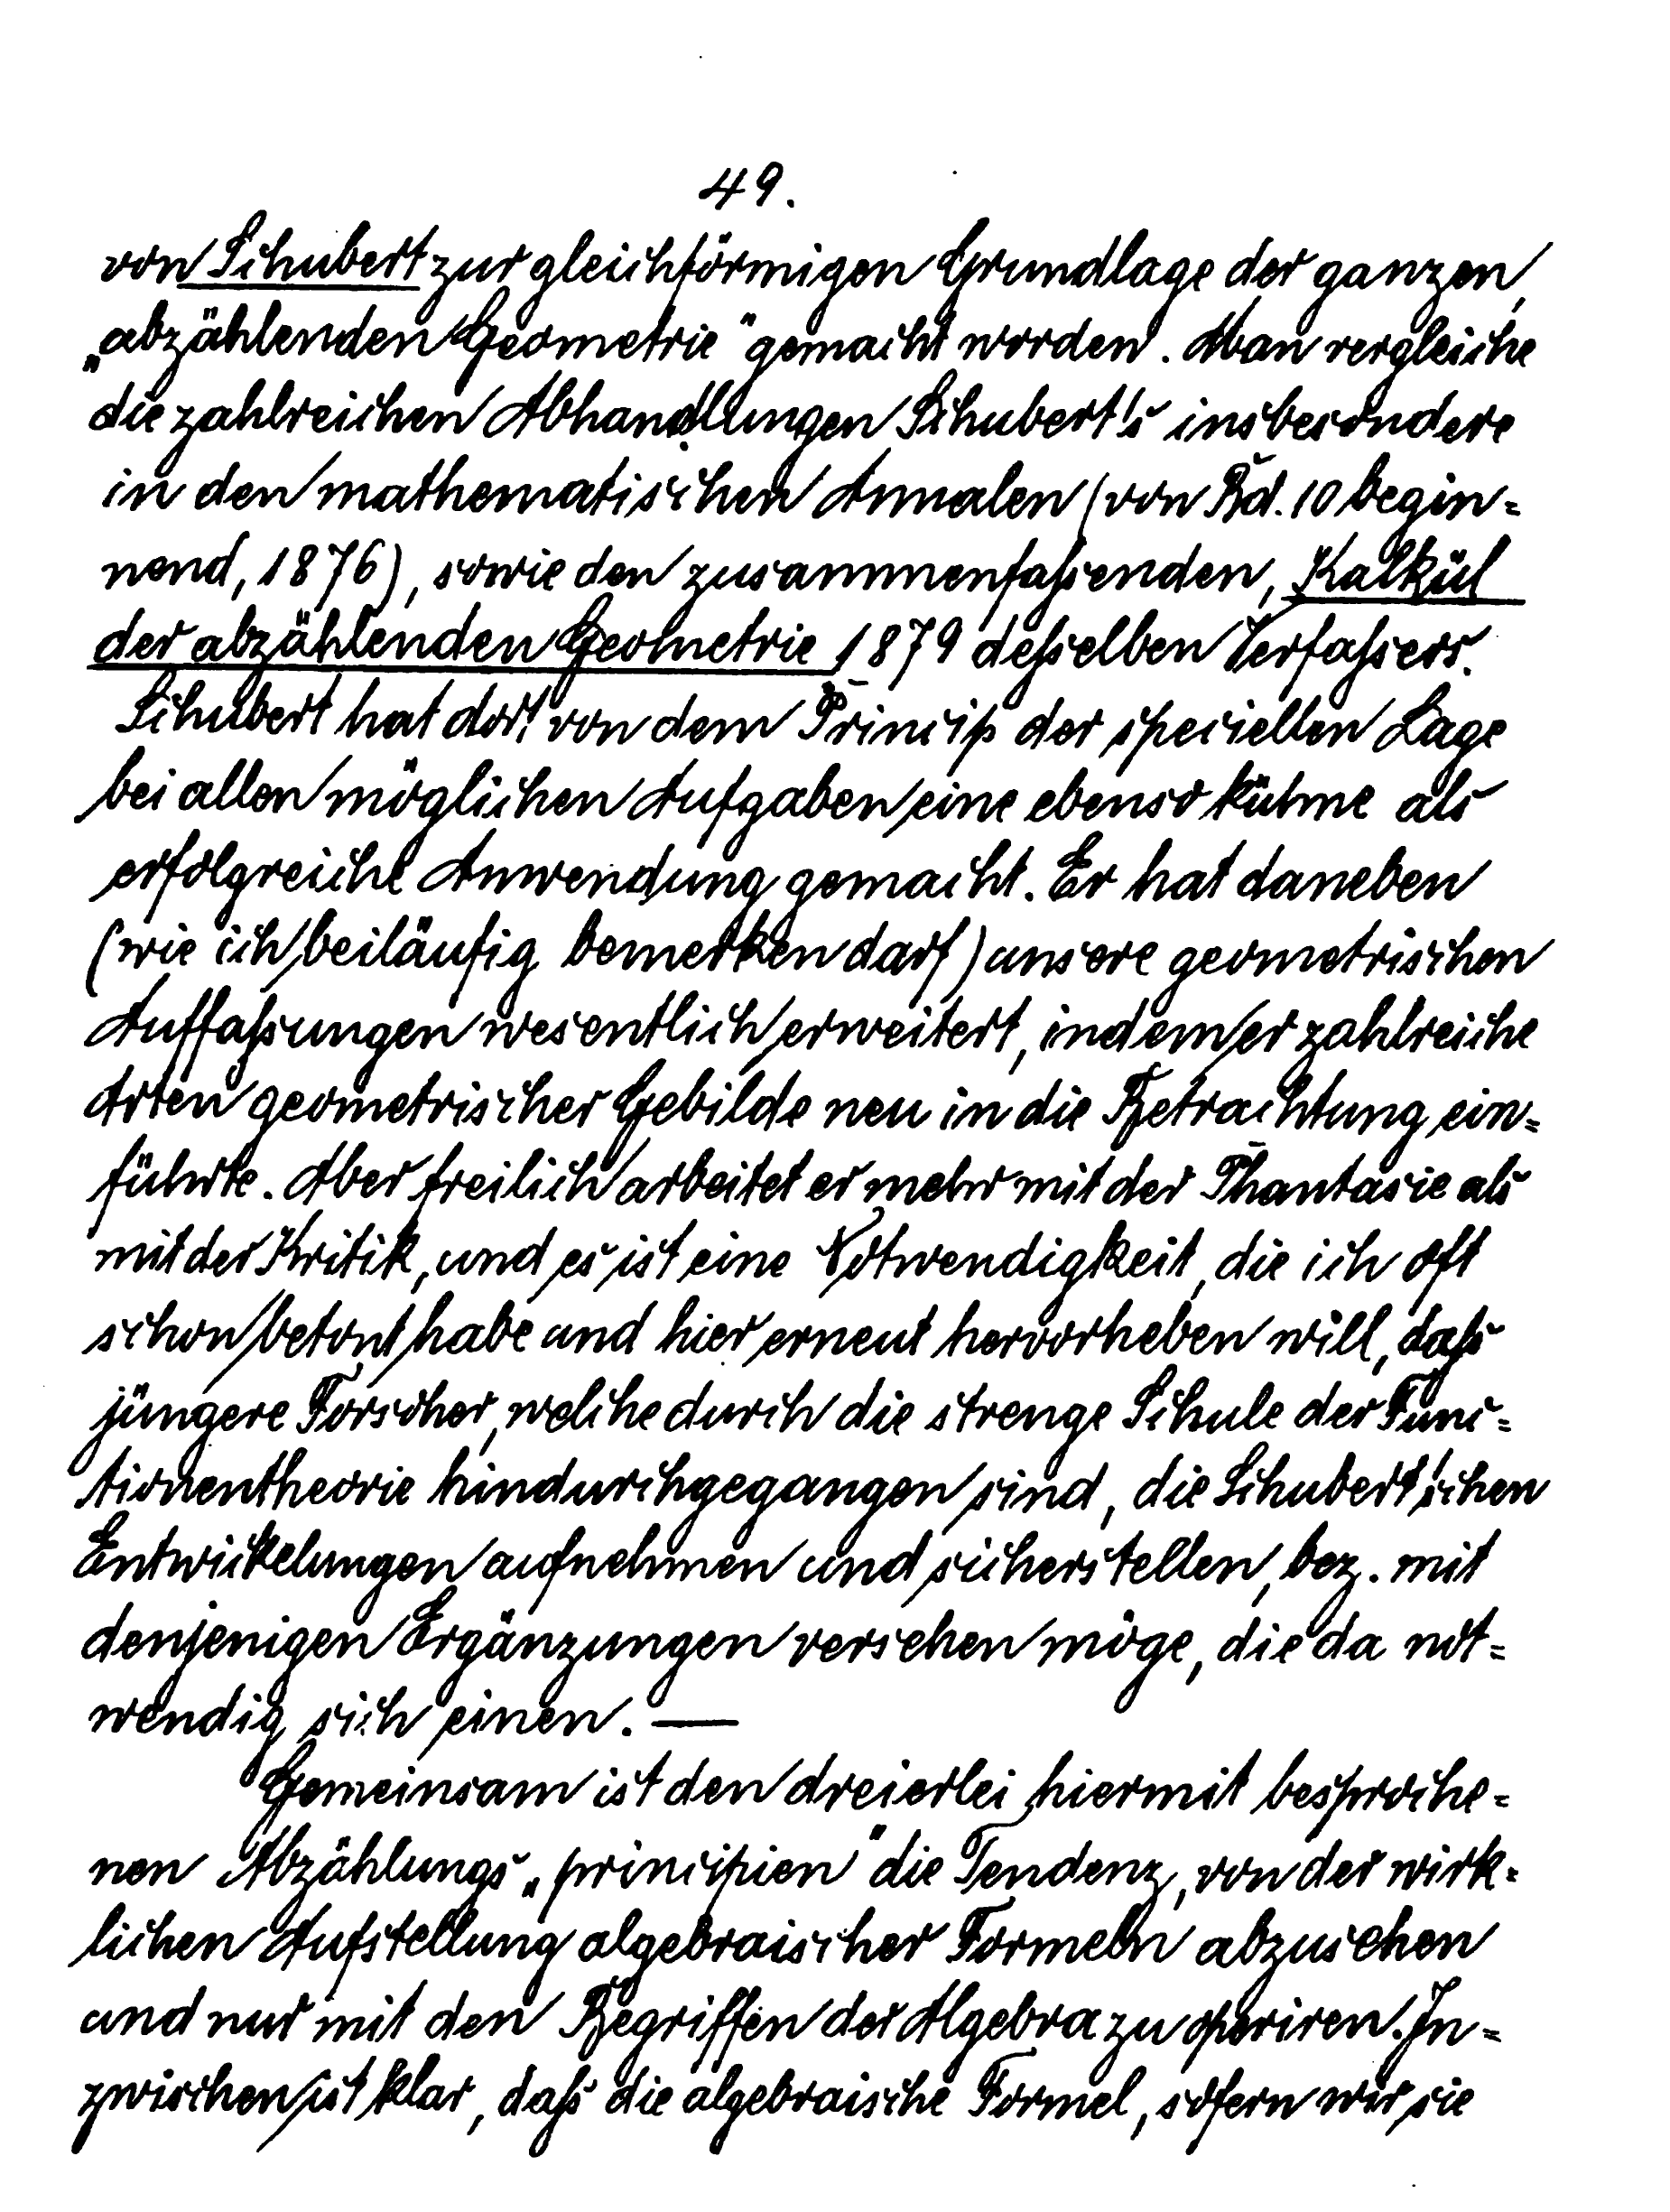 49.
von Schubert zur gleichförmigen Grundlage der ganzen
„abzählenden Geometrie" gemacht worden. Man vergleiche
die zahlreichen Abhandlungen Schubert's insbesondere
in den mathematischen Annalen (von Bd. 10 begin-
nend, 1876), sowie den zusammenfaßenden, Kalkül
der abzählenden Geometrie 1879 deßselben Verfaßers.
Schubert hat dort von dem Princip der speciellen Lage
bei allen möglichen Aufgaben eine ebenso kühne als
erfolgreiche Anwendung gemacht. Er hat daneben
(wie ich beiläufig bemerken darf) unsere geometrischen
Auffaßungen wesentlich erweitert, indem er zahlreiche
Arten geometrischer Gebilde neu in die Betrachtung ein-
führte. Aber freilich arbeitet er mehr mit der Phantasie als
mit der Kritik, und es ist eine Notwendigkeit, die ich oft
schon betont habe und hier erneut hervorheben will, daß
jüngere Forscher, welche durch die strenge Schule der Func-
tionentheorie hindurchgegangen sind, die Schubert'schen
Entwickelungen aufnehmen und sicherstellen, bez. mit
denjenigen Ergänzungen versehen möge, die da not-
wendig sich einen. —
Gemeinsam ist den dreierlei hiermit besproche-
nen Abzählungs„principien" die Tendenz, von der wirk-
lichen Aufstellung algebraischer Formeln abzusehen
und nur mit den Begriffen der Algebra zu operiren. In-
zwischen ist klar, daß die algebraische Formel, sofern wir sie